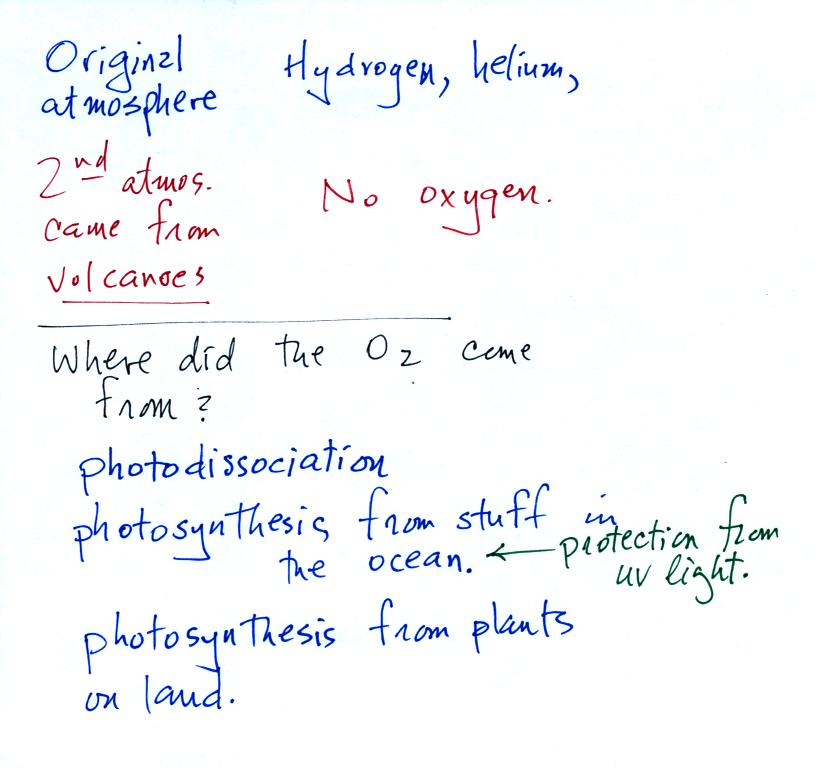 Original Hydrogen, helium,
atmosphere
2nd atmos. No oxygen.
came from
volcanoes
Where did the O2 come
from?
photodissociation
photosynthesis from stuff in
the ocean. ← protection from
uv light.
photosynthesis from plants
on land.